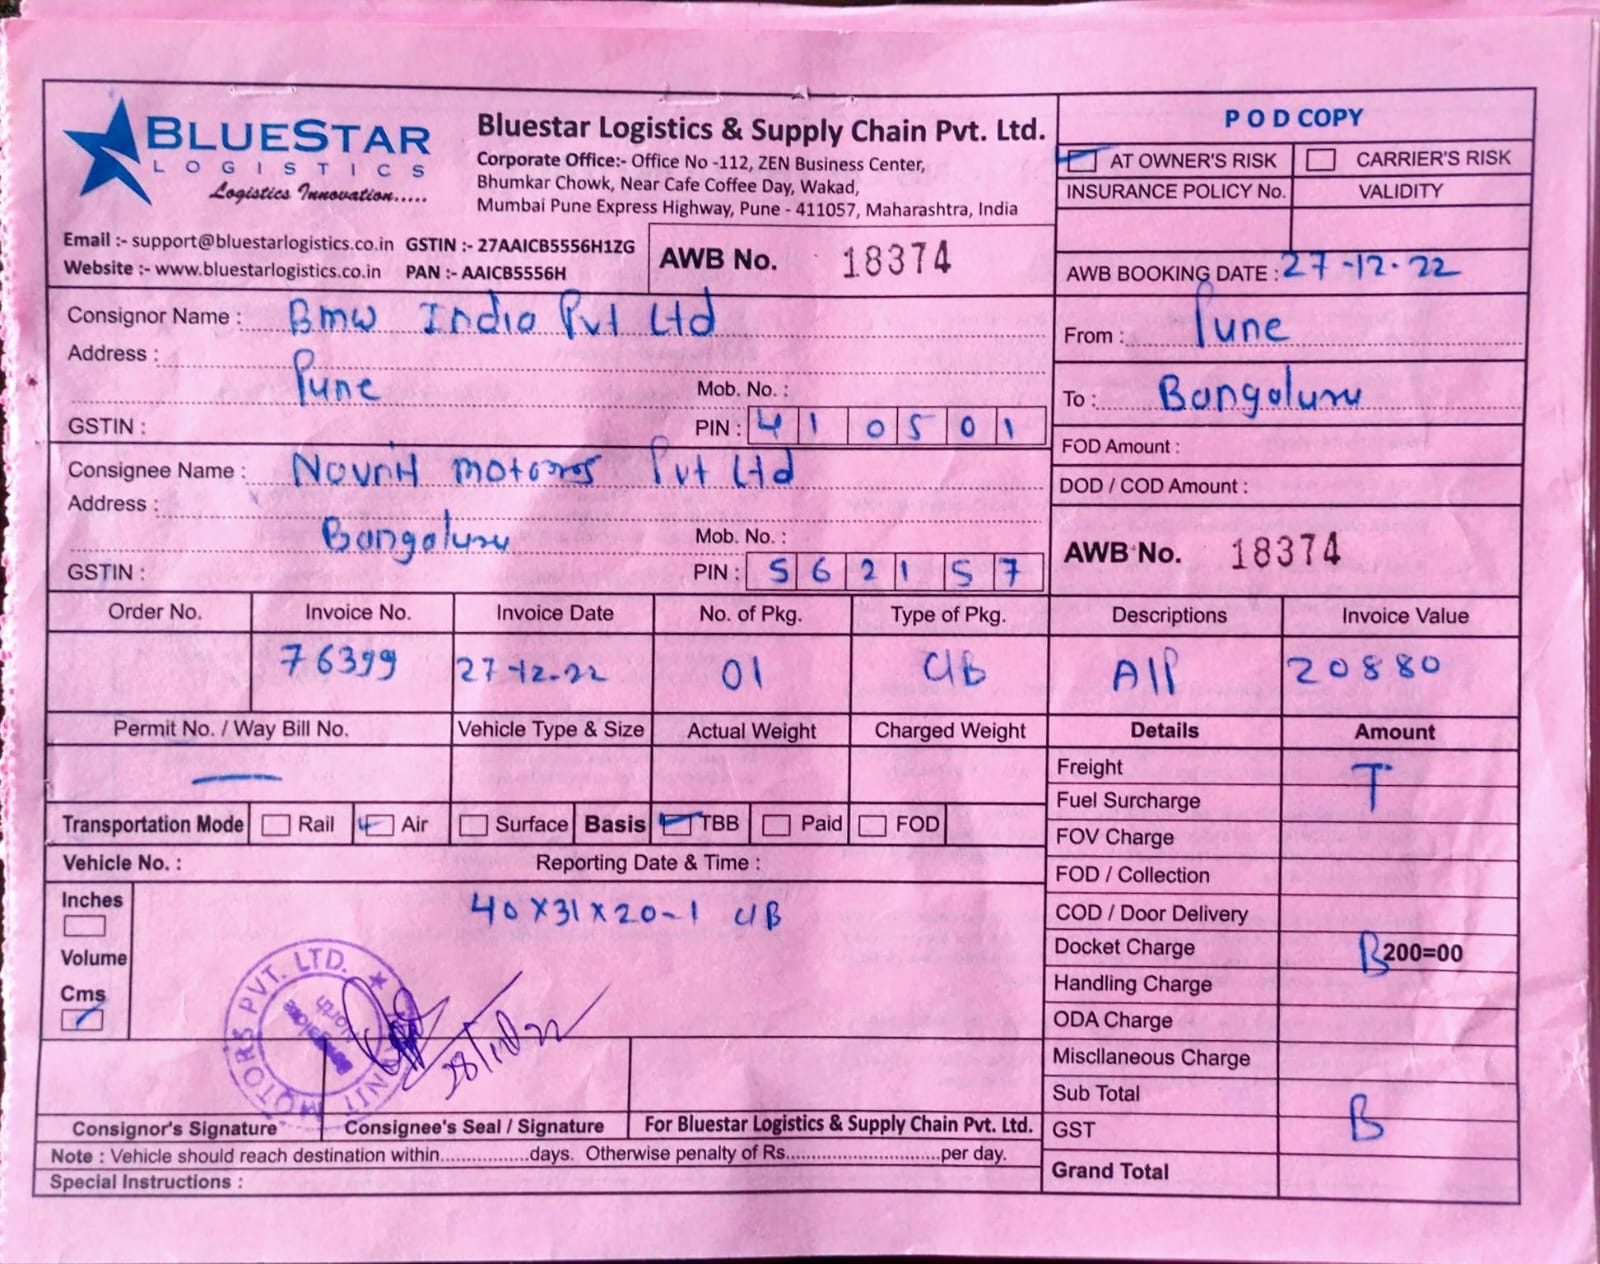 BLUESTAR
LOGISTICS
Logistics Innovation.....
Bluestar Logistics & Supply Chain Pvt. Ltd.
Corporate Office:- Office No -112, ZEN Business Center,
Bhumkar Chowk, Near Cafe Coffee Day, Wakad,
Mumbai Pune Express Highway, Pune - 411057, Maharashtra, India
Email :- support@bluestarlogistics.co.in GSTIN :- 27AAICB5556H1ZG
Website :- www.bluestarlogistics.co.in PAN :- AAICB5556H
AWB No. 18374
POD COPY
AT OWNER'S RISK CARRIER'S RISK
INSURANCE POLICY No. VALIDITY
AWB BOOKING DATE : 27-12-22
Consignor Name : Bmw India Pvt Ltd
Address :
Pune Mob. No. :
GSTIN : PIN : 410501
From : Pune
To : Bangaluru
FOD Amount :
DOD / COD Amount :
Consignee Name : Motors Pvt Ltd
Address :
Bangaluru Mob. No. :
GSTIN : PIN : 562157
AWB No. 18374
Order No. Invoice No. Invoice Date No. of Pkg. Type of Pkg. Descriptions Invoice Value
76399 27-12-22 01 C/B A/P 20880
Permit No. / Way Bill No. Vehicle Type & Size Actual Weight Charged Weight Details Amount
—
Freight T
Fuel Surcharge
Transportation Mode Rail Air Surface Basis TBB Paid FOD
FOV Charge
Vehicle No. : Reporting Date & Time :
FOD / Collection
Inches
40 x 31 x 20 - 1 C/B
COD / Door Delivery
Volume
Docket Charge B 200=00
Cms
Handling Charge
ODA Charge
Miscllaneous Charge
Sub Total
GST B
Grand Total
MOTORS PVT. LTD. ★
North
Consignor's Signature Consignee's Seal / Signature For Bluestar Logistics & Supply Chain Pvt. Ltd.
Note : Vehicle should reach destination within.................days. Otherwise penalty of Rs.............................per day.
Special Instructions :